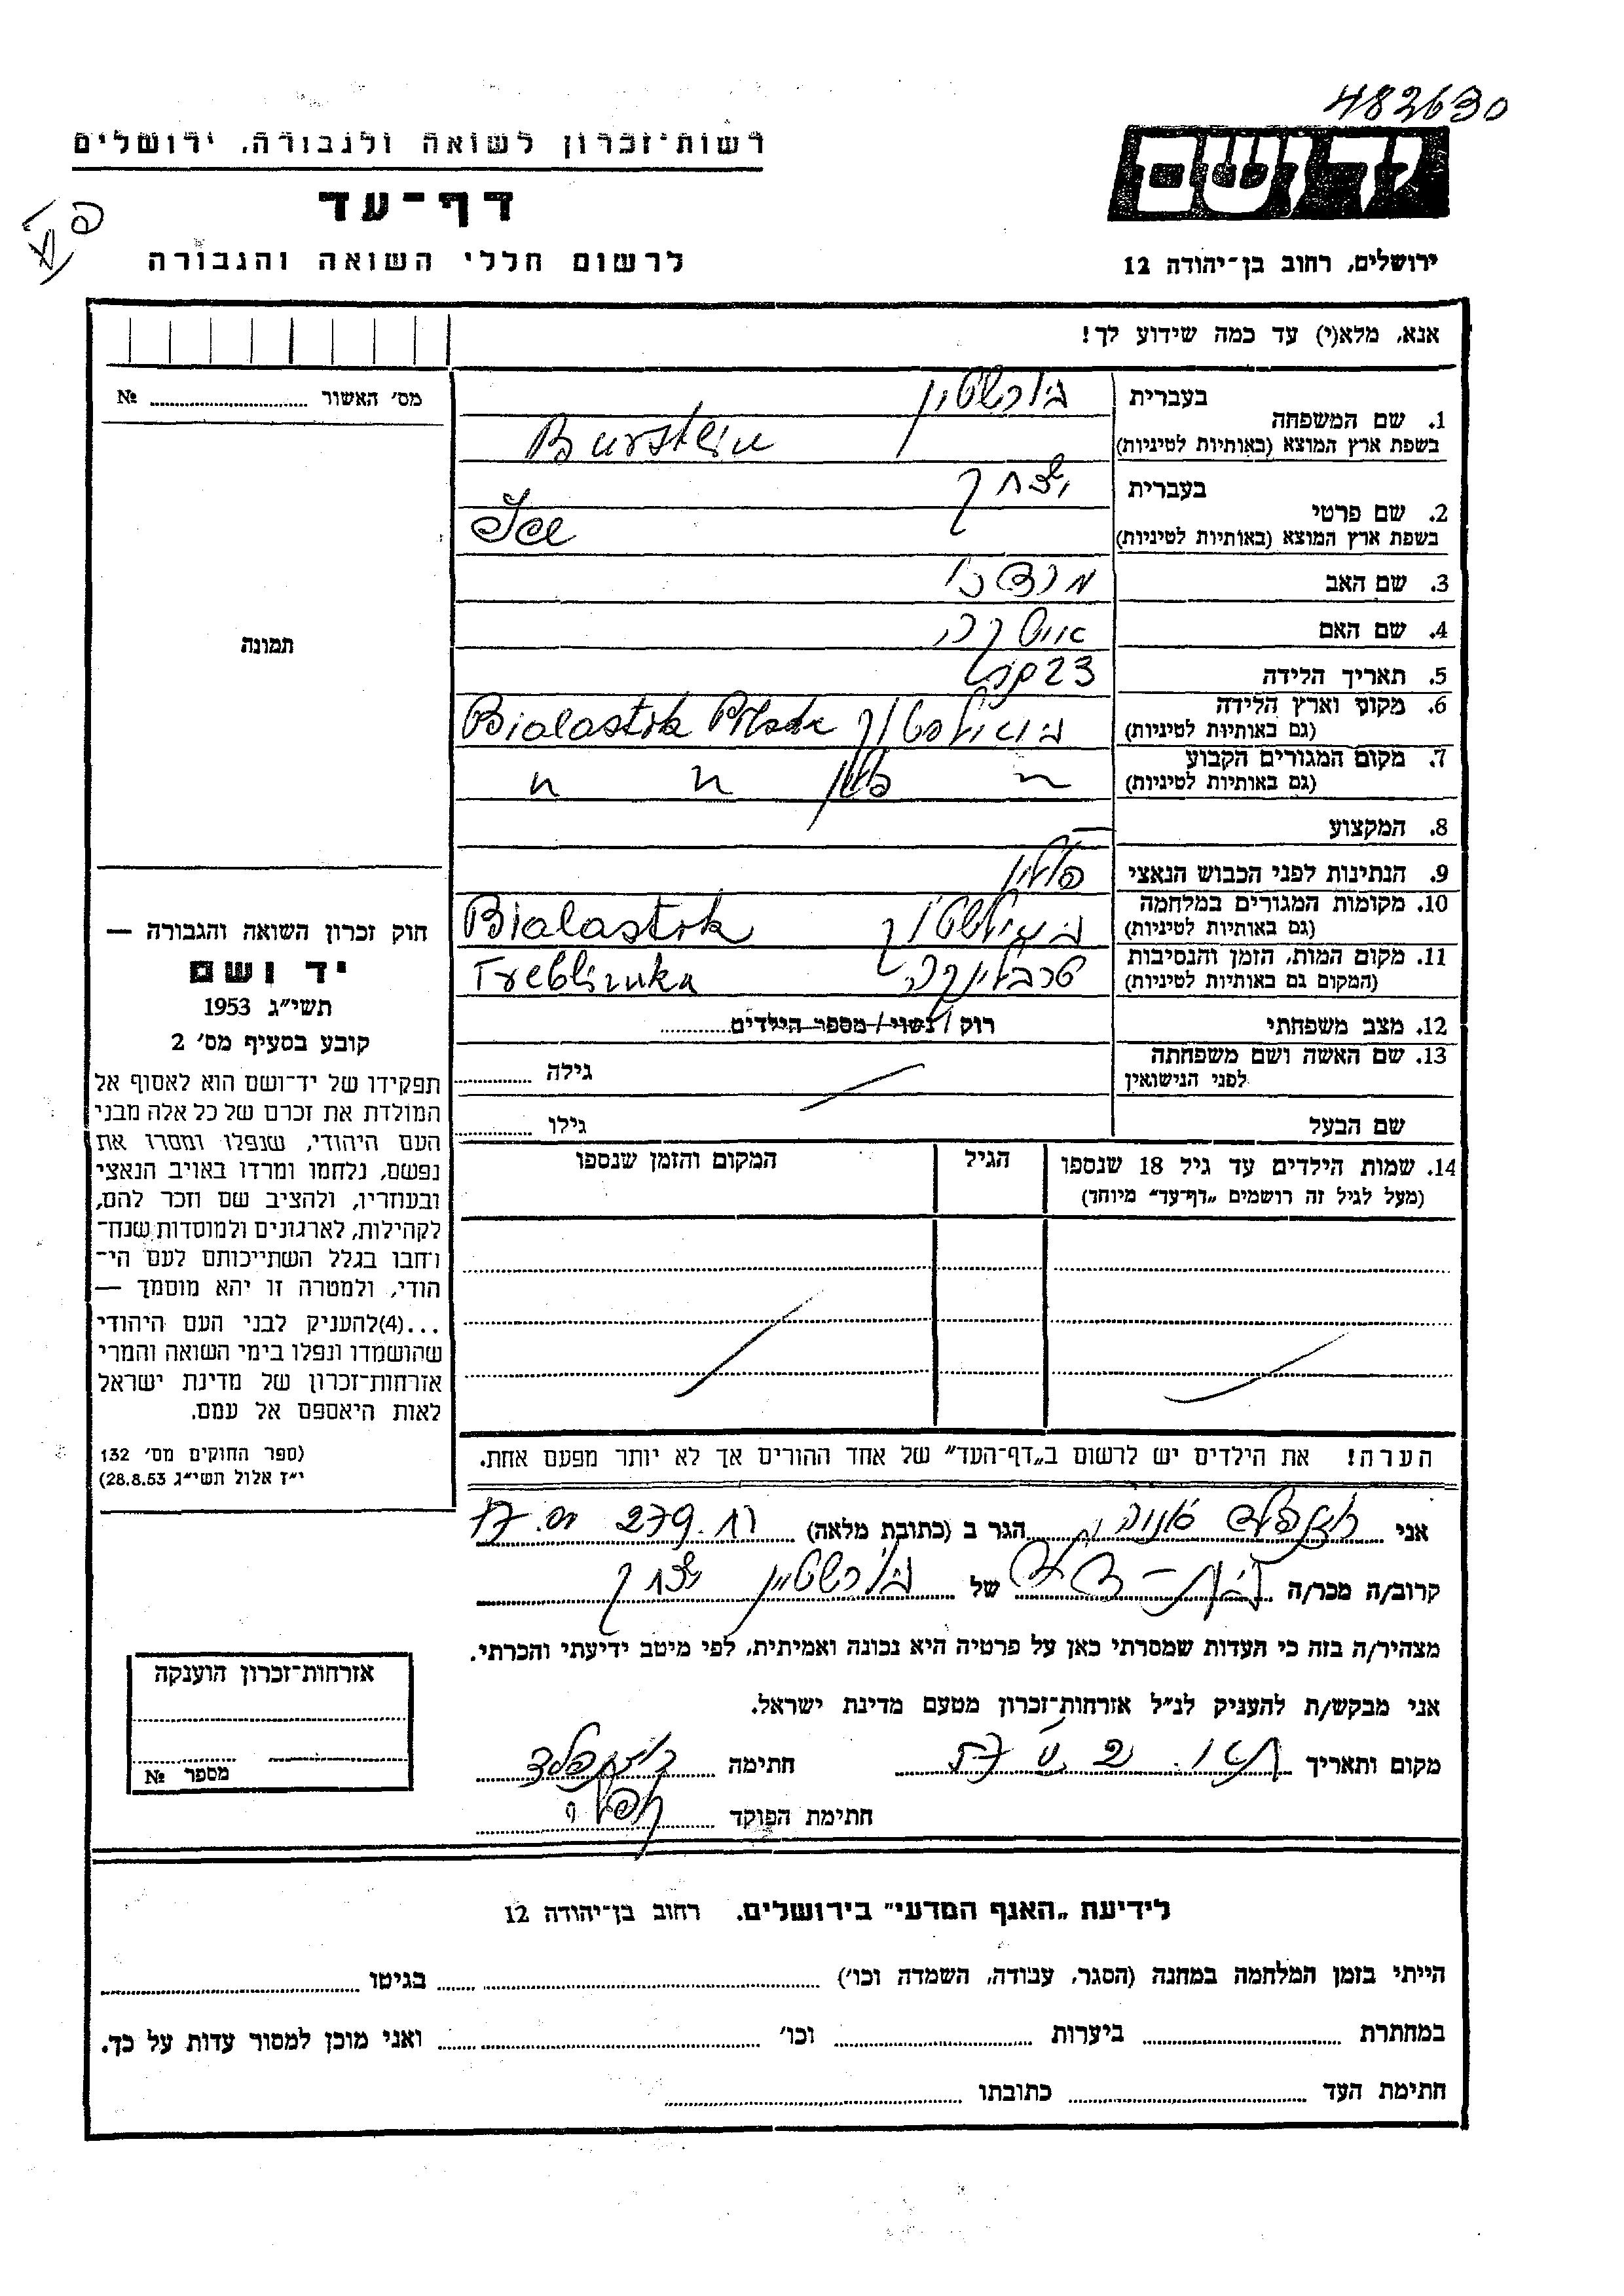 482630
רשות־זכרון לשואה ולגבורה, ירושלים
דף־עד
לרשום חללי השואה והגבורה
יד ושם
ירושלים, רחוב בן־יהודה 12
אנא, מלא(י) עד כמה שידוע לך!
מס׳ האשור ........ №
תמונה
חוק זכרון השואה והגבורה —
יד ושם
תשי״ג 1953
קובע בסעיף מס׳ 2
תפקידו של יד־ושם הוא לאסוף אל
המולדת את זכרם של כל אלה מבני
העם היהודי, שנפלו ומסרו את
נפשם, נלחמו ומרדו באויב הנאצי
ובעוזריו, ולהציב שם וזכר להם,
לקהילות, לארגונים ולמוסדות שנח־
רחבו בגלל השתייכותם לעם הי־
הודי, ולמטרה זו יהא מוסמך —
...(4)להעניק לבני העם היהודי
שהושמדו ונפלו בימי השואה והמרי
אזרחות־זכרון של מדינת ישראל
לאות היאספם אל עמם.
(ספר החוקים מס׳ 132
י״ז אלול תשי״ג 28.8.53)
1. שם המשפחה
בעברית בורשטין
בשפת ארץ המוצא (באותיות לטיניות) Burstein
2. שם פרטי
בעברית יצחק
בשפת ארץ המוצא (באותיות לטיניות)
3. שם האב מרדכי
4. שם האם
5. תאריך הלידה 23
6. מקום וארץ הלידה
(גם באותיות לטיניות) ביאליסטוק Bialastok Polska
7. מקום המגורים הקבוע
(גם באותיות לטיניות) " פולין " "
8. המקצוע —
9. הנתינות לפני הכבוש הנאצי פולין
10. מקומות המגורים במלחמה
(גם באותיות לטיניות) ביאליסטוק Bialastok
11. מקום המות, הזמן והנסיבות
(המקום גם באותיות לטיניות) טרבלינקה Treblinka
12. מצב משפחתי רוק / נשוי / מספר הילדים........
13. שם האשה ושם משפחתה
לפני הנישואין גילה ........
שם הבעל גילו ........
14. שמות הילדים עד גיל 18 שנספו
(מעל לגיל זה רושמים „דף־עד״ מיוחד)
הגיל
המקום והזמן שנספו
הערה! את הילדים יש לרשום ב„דף־העד״ של אחד ההורים אך לא יותר מפעם אחת.
אני הגר ב (כתובת מלאה) 279
קרוב/ה מכר/ה בת-דוד של בורשטיין יצחק
מצהיר/ה בזה כי העדות שמסרתי כאן על פרטיה היא נכונה ואמיתית, לפי מיטב ידיעתי והכרתי.
אני מבקש/ת להעניק לנ״ל אזרחות־זכרון מטעם מדינת ישראל.
מקום ותאריך חתימה
חתימת הפוקד
אזרחות־זכרון הוענקה
מספר №
לידיעת „האגף המדעי״ בירושלים, רחוב בן־יהודה 12
הייתי בזמן המלחמה במחנה (הסגר, עבודה, השמדה וכו׳) ........ בגיטו ........
במחתרת ........ ביערות ........ וכו׳ ........ ואני מוכן למסור עדות על כך.
חתימת העד ........ כתובתו ........